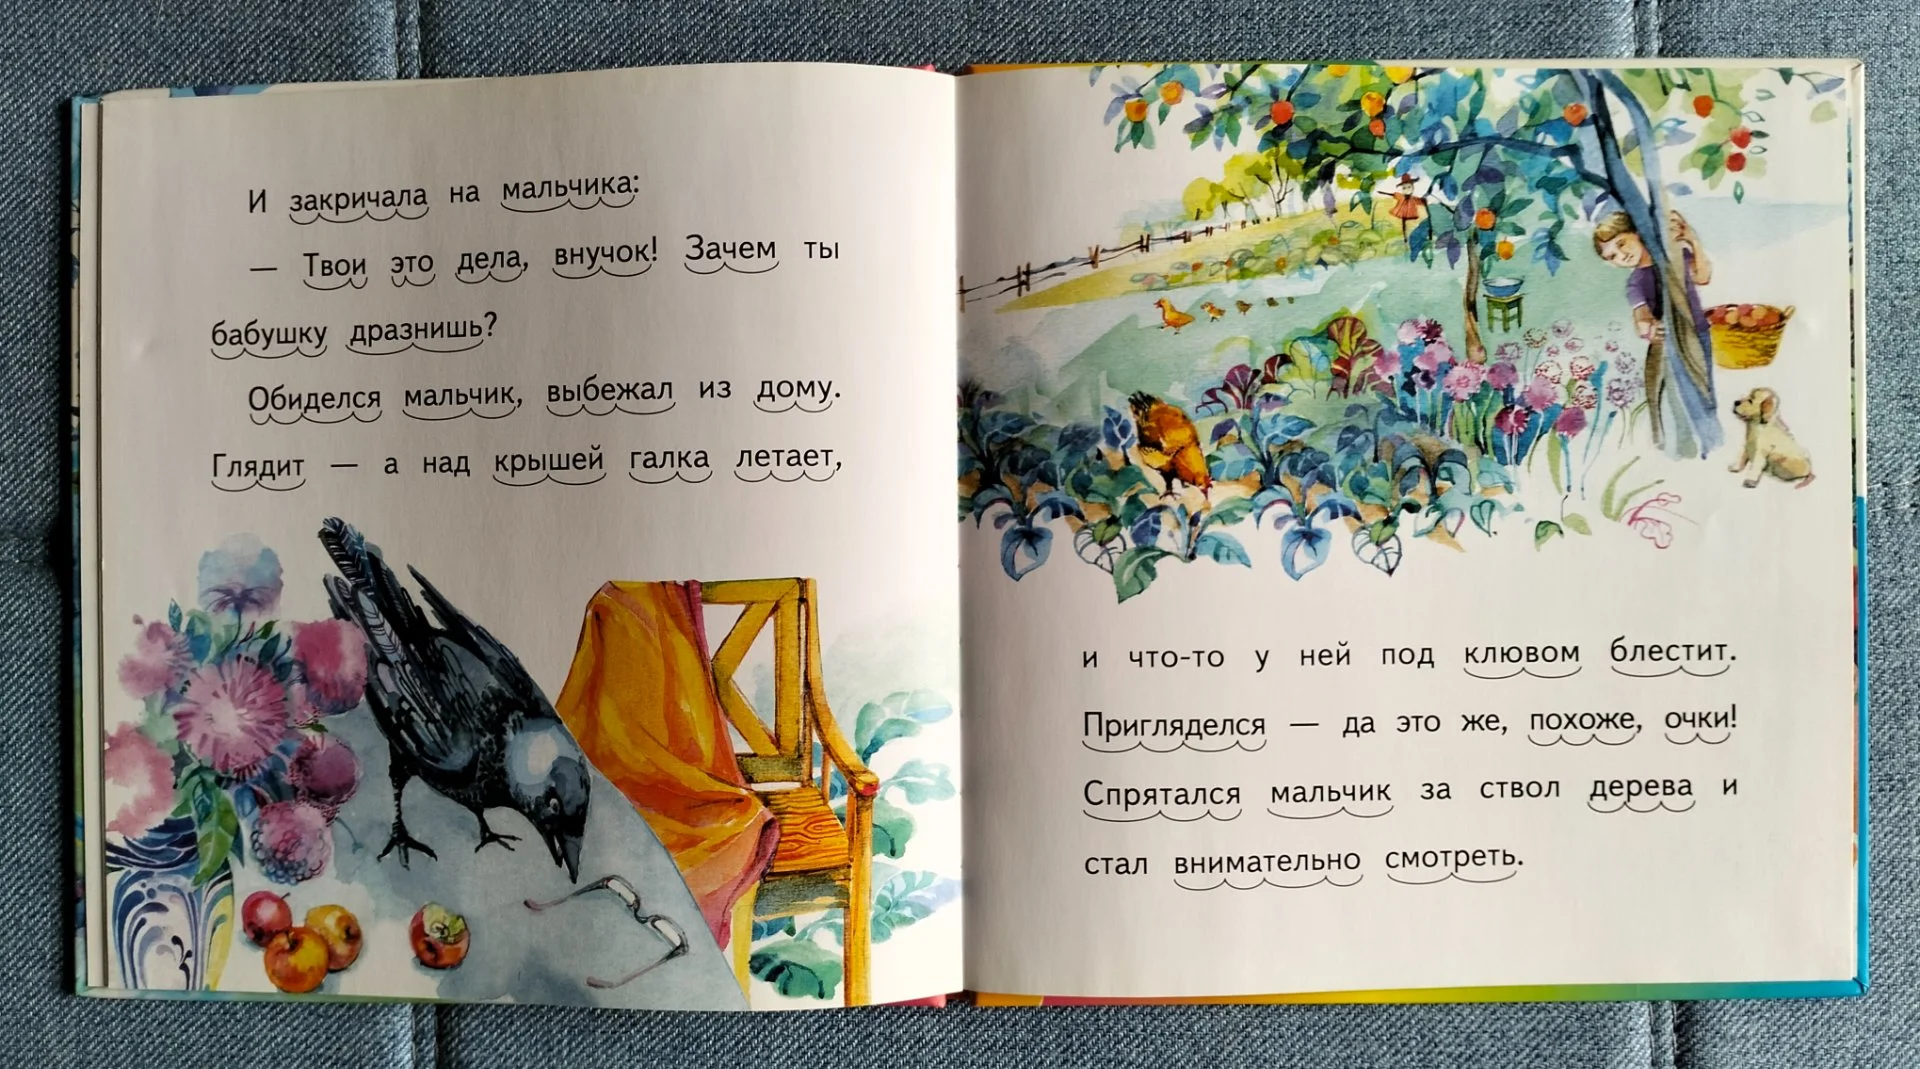 И закричала на мальчика:
— Твои это дела, внучок! Зачем ты
бабушку дразнишь?
Обиделся мальчик, выбежал из дому.
Глядит — а над крышей галка летает,
и что-то у ней под клювом блестит.
Пригляделся — да это же, похоже, очки!
Спрятался мальчик за ствол дерева и
стал внимательно смотреть.